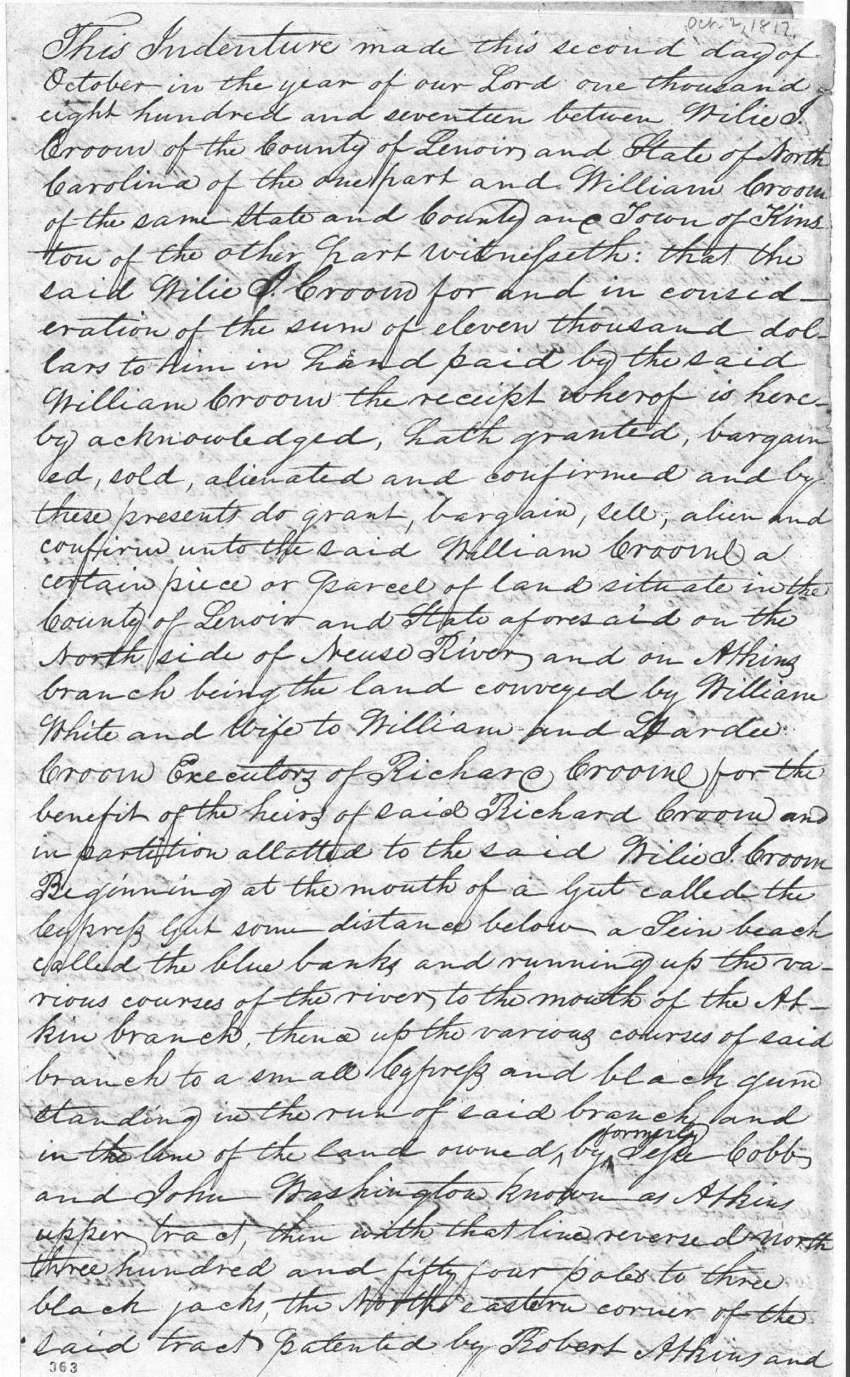 Oct. 2, 1817.
This Indenture made this second day of
October in the year of our Lord one thousand
eight hundred and seventeen betwen Wilie J.
Croom of the County of Lenoir and State of North
Carolina of the one part and William Croom
of the same State and County and Town of Kins
ton of the other part witnesseth: that the
said Wilie J. Croom for and in consid-
eration of the sum of eleven thousand dol-
lars to him in hand paid by the said
William Croom the receipt wherof is here-
by acknowledged, hath granted, bargain
ed, sold, alienated and confirmed and by
these presents do grant, bargain, sell, alien and
confirm unto the said William Croom a
certain piece or parcel of land situate in the
County of Lenoir and State aforesaid on the
North side of Neuse River and on Atkins
branch being the land conveyed by William
White and Wife to William and Hardee
Croom Executors of Richard Croom for the
benefit of the heirs of said Richard Croom and
in partition allatted to the said Wilie J. Croom
Beginning at the mouth of a Gut called the
Cypress Gut some distance below a Sein beach
called the blue banks and running up the va-
rious courses of the river to the mouth of the At-
kin branch, thence up the various courses of said
branch to a small Cypress and black gum
standing in the run of said branch and
in the line of the land owned by formerly Jesse Cobb
and John Washington known as Atkins
upper tract, then with that line reversed north
three hundred and fifty four poles to three
black jacks, the North eastern corner of the
said tract patented by Robert Atkins and
363